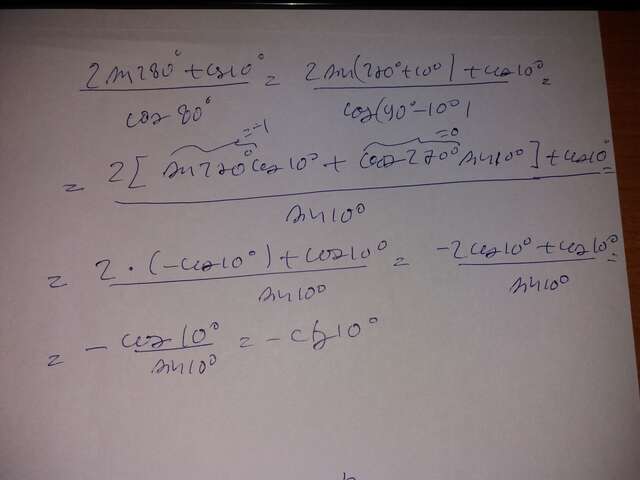 2 sin 280° + cos 10° / cos 80° = 2 sin(270° + 10°) + cos 10° / cos(90° - 10°) =
= 2 [ sin 270° cos 10° + cos 270° sin 10° ] + cos 10° / sin 10° =
= -1 = 0
= 2 · (-cos 10°) + cos 10° / sin 10° = -2 cos 10° + cos 10° / sin 10° =
= - cos 10° / sin 10° = - ctg 10°